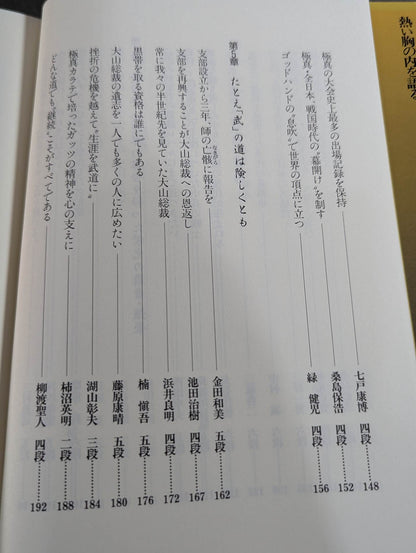 熱い胸の内を語る
極真の大会史上最多の出場記録を保持 七戸康博 四段 148
極真・全日本、戦国時代の“幕開け”を制す 桑島保浩 四段 152
ゴッドハンドの“息吹”で世界の頂点に立つ 緑 健児 四段 156
第5章 たとえ、「武」の道は険しくとも
支部設立から三年、師の亡骸に報告を 金田和美 五段 162
なきがら
支部を再興することが大山総裁への恩返し 池田治樹 四段 167
常に我々の半世紀先を見ていた大山総裁 浜井良明 四段 172
黒帯を取る資格は誰にでもある 楠 愼吾 五段 176
大山総裁の遺志を一人でも多くの人に広めたい 藤原康晴 五段 180
挫折の危機を越えて“生涯を武道に” 湖山彰夫 三段 184
極真カラテで培ったガッツの精神を心の支えに 柿沼英明 二段 188
どんな道でも、“継続”こそがすべてである 柳渡聖人 四段 192